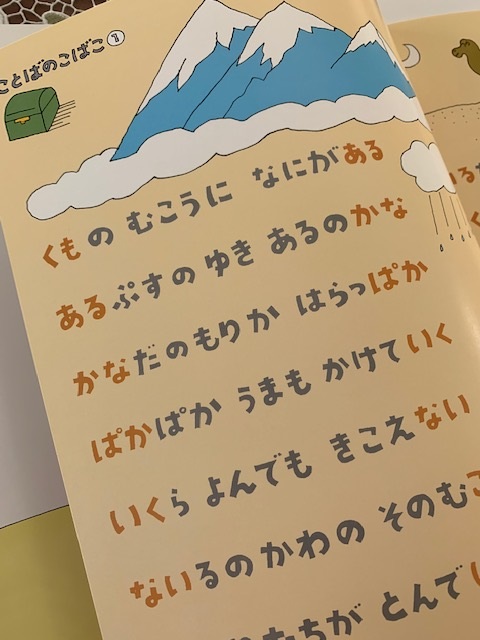 ことばのこばこ 1
くもの むこうに なにがある
あるぷすの ゆき あるのかな
かなだのもりか はらっぱか
ぱかぱか うまも かけていく
いくら よんでも きこえない
ないるのかわの そのむこ
たちが とんで